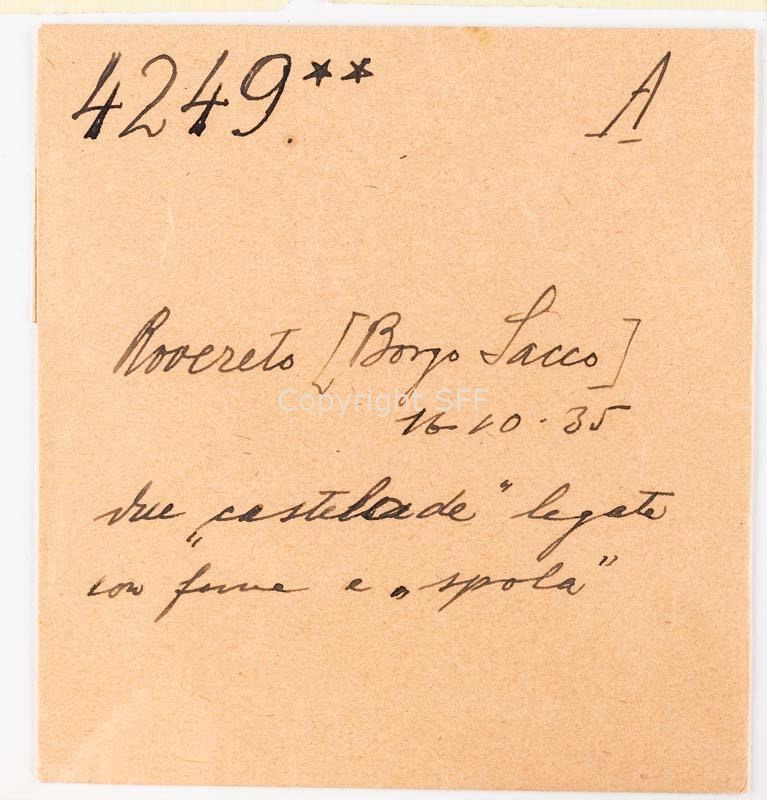 4249** A
Rovereto [Borgo Sacco]
Copyright SFF
16-10-35
due „castelade" legate
con fune e „spola"